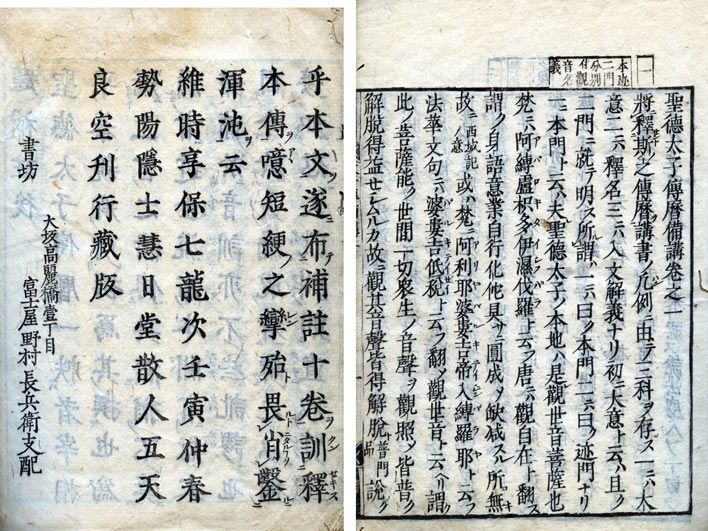 本迹二門分別付觀音名義
聖德太子傳曆備講卷之一
將釋斯之傳曆講書ノ凡例ニ由テ三科ヲ存ス一ニハ大
意二ニハ釋名三ニハ入文解義ナリ初ニ大意ト云ハ且ク
二門ニ就テ明ス所謂ハ一ニハ曰ク本門二ニハ曰ク迹門ナリ
一ニ本門ト云ハ夫聖德太子ノ本地ハ是觀世音菩薩也
梵ニハ阿縛盧枳多伊濕伐羅ト云フ唐ニハ觀自在ト翻ス
謂ク身語意業自行化他圓成シ缺減スル所無キカ
故ニ西域記ノ意或ハ梵ニ阿利耶婆婁吉帝入縛羅耶ト云フ
法華文句ニハ婆婁吉低税ト云フ翻シテ觀世音ト云ヘリ謂ク
此ノ菩薩能ク世間一切衆生ノ音聲ヲ觀照シ皆普ク
解脱得益セシムルカ故ニ觀其音聲皆得解脱ト普門品說ク
乎本文ニ遂布テ補註十卷ヲ訓釋セキス
本傳ヲ噫短綆之攣殆ト畏ル肖鑿ニ
渾沌ヲ云
維時享保七龍次壬寅仲春
勢陽隱士慧日堂散人五天
良空刊行藏版
書坊
大坂高麗橋壹丁目
富士屋野村長兵衞支配